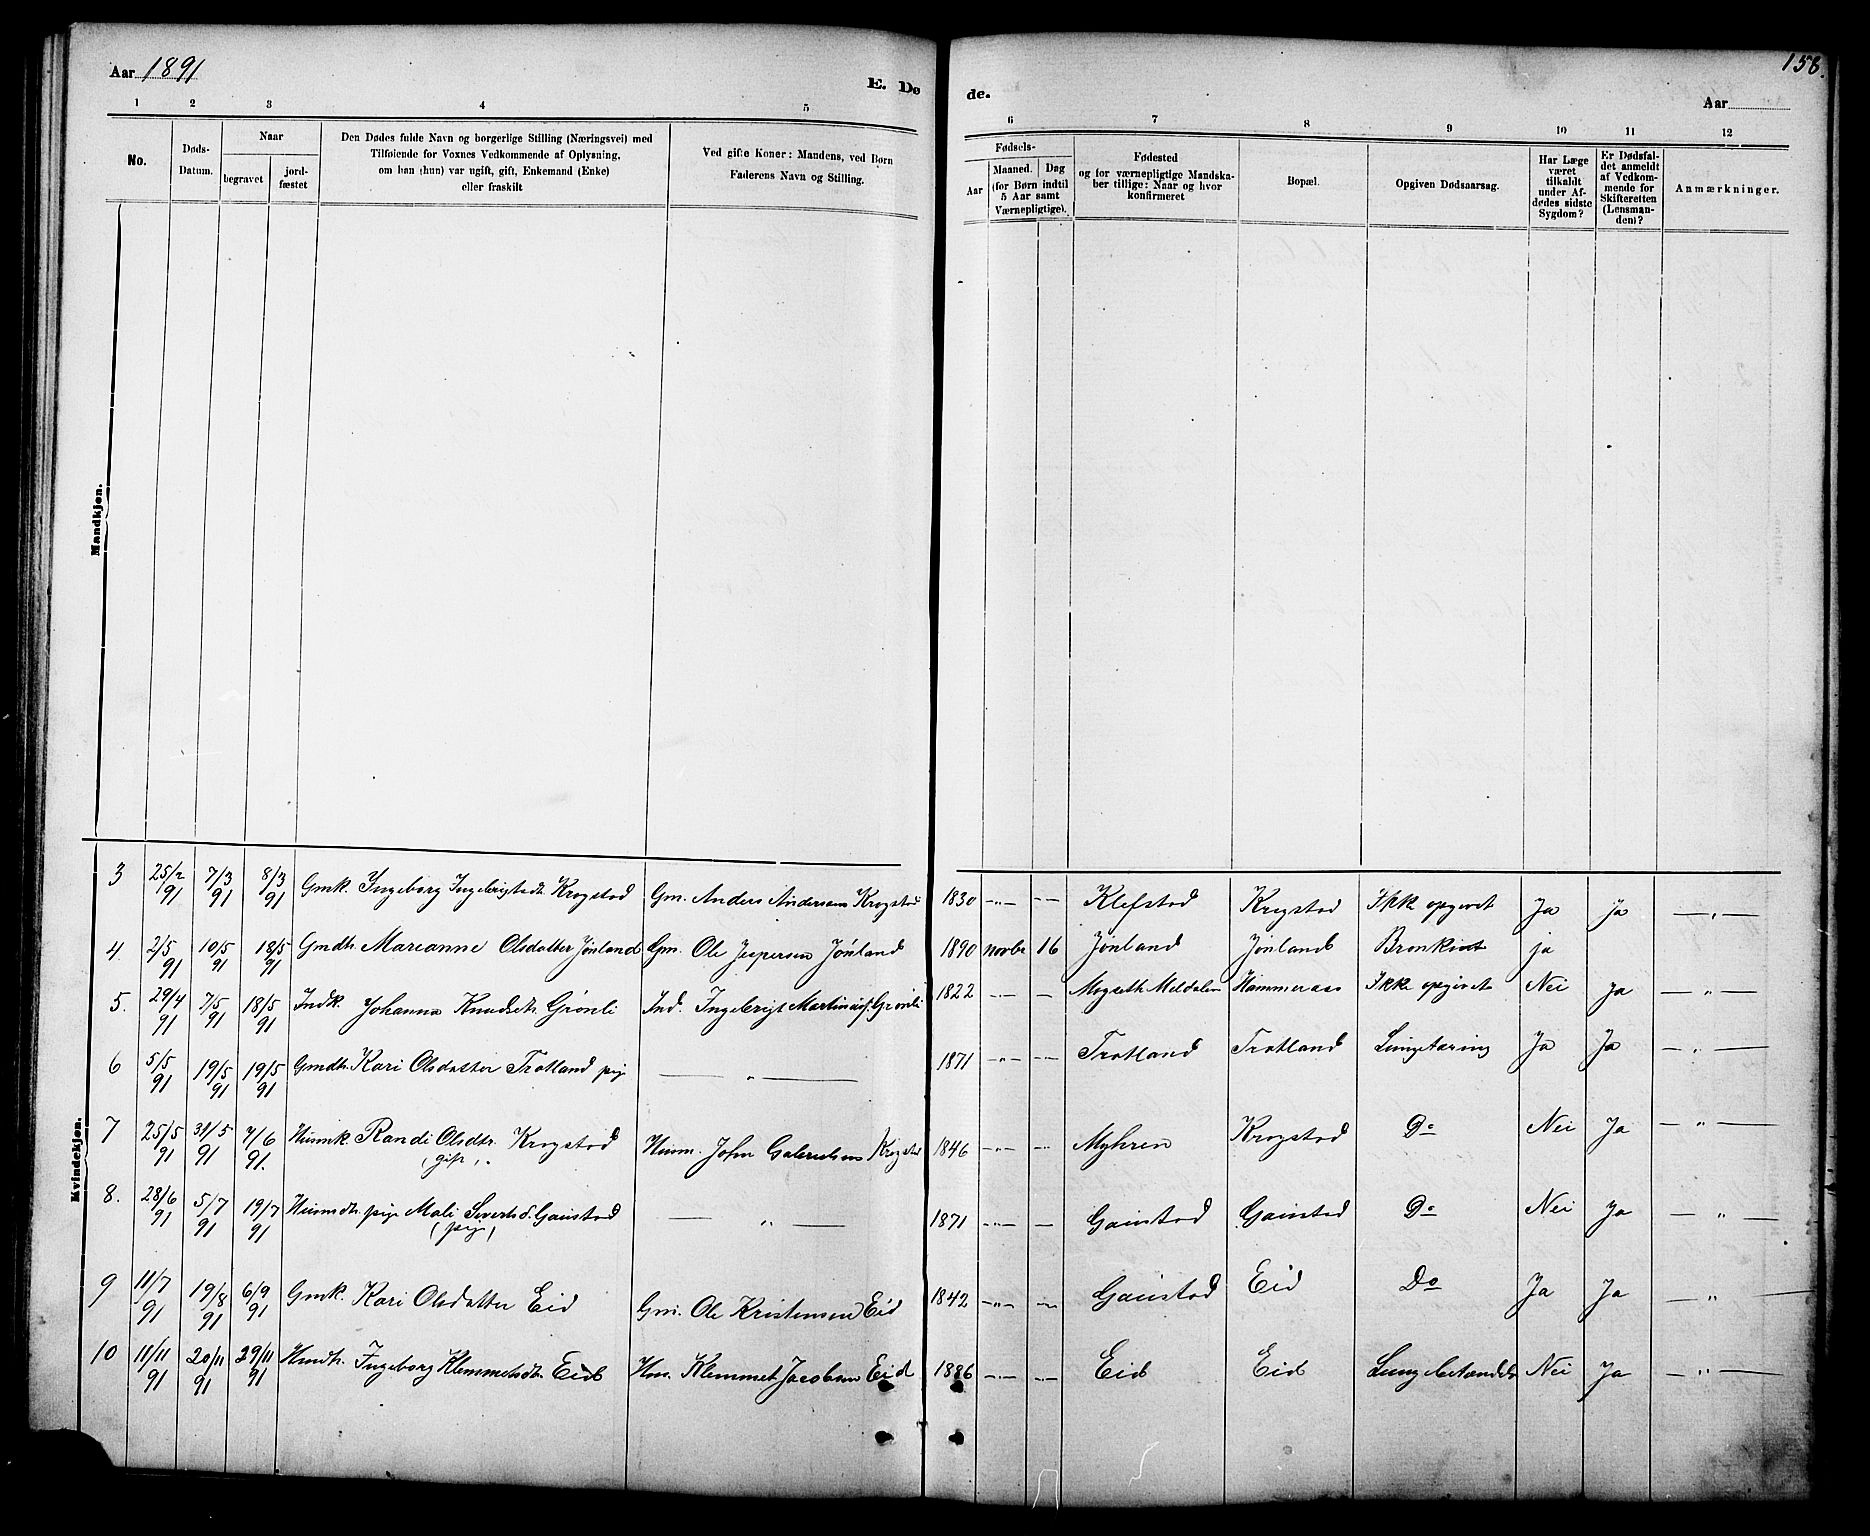 Aar 1891
E. Dø
de.
158.
Aar
1 2 3 4 5 6 7 8 9 10 11 12
No.
Døds-
Datum.
Naar
begravet
jord-
fæstet
Den Dødes fulde Navn og borgerlige Stilling (Næringsvei) med
Tilføiende for Voxnes Vedkommende af Oplysning,
om han (hun) var ugift, gift, Enkemand (Enke)
eller fraskilt
Ved gifte Koner: Mandens, ved Børn
Faderens Navn og Stilling.
Fødsels-
Aar
Maaned. Dag
(for Børn indtil
5 Aar samt
Værnepligtige).
Fødested
og for værnepligtige Mandska-
ber tillige: Naar og hvor
konfirmeret
Bopæl.
Opgiven Dødsaarsag.
Har Læge
været
tilkaldt
under Af-
dødes sidste
Sygdom?
Er Dødsfal-
det anmeldt
af Vedkom-
mende for
Skifteretten
(Lensman-
den)?
Anmærkninger.
Mandkjøn.
Kvindekjøn.
3 25/2 91 7/3 91 8/3 91 Gmk. Ingeborg Ingebrigtsdtr. Krogstad Gm. Anders Andersen Krogstad 1830 —"— —"— Klefstad Krogstad Ikke opgivet Ja ja —"—
4 2/5 91 10/5 91 18/5 91 Gmdtr. Marianne Olsdatter Jønland Gm. Ole Jespersen Jønland 1890 novbr 16 Jønland Jønland Bronkint ja
5. 29/4 91 7/5 91 18/5 91 Indk. Johanna Knudsdtr. Grønli Ind. Ingebrigt Grønli 1822 —"— — Meldalen Hammeraas Ikke opgivet Nei Ja —"—
6 5/5 91 19/5 91 19/5 91 Gmdtr. Kari Olsdatter Trotland pige —"— 1871 —"— —"— Trotland Trotland Lungetæring Ja Ja —"—
7 25/5 91 31/5 91 7/6 91. Huusmk. Randi Olsdtr. Krogstad Huusm. John Krogstad 1846 —"— —"— Myhren Krogstad Do Nei Ja —"—
(gift)
8. 28/6 91 5/7 91 19/7 91 Huusmdtr. pige Mali Sivertsd. Gaustad —"— 1871 —"— — Gaustad Gaustad Do Nei Ja —"—
(pige)
9 11/7 91 19/8 91 6/9 91 Gmk. Kari Olsdatter Eid Gm. Ole Kristensen Eid 1842 —"— —"— Gaustad Eid Do Ja Ja —"—
10 11/11 91 20/11 91 29/11 91 Hmdtr. Ingeborg Klemmetsdtr. Eid Hm. Klemmet Jacobsen Eid 1886 —"— —"— Eid Eid Lungebetændelse Nei Ja —"—